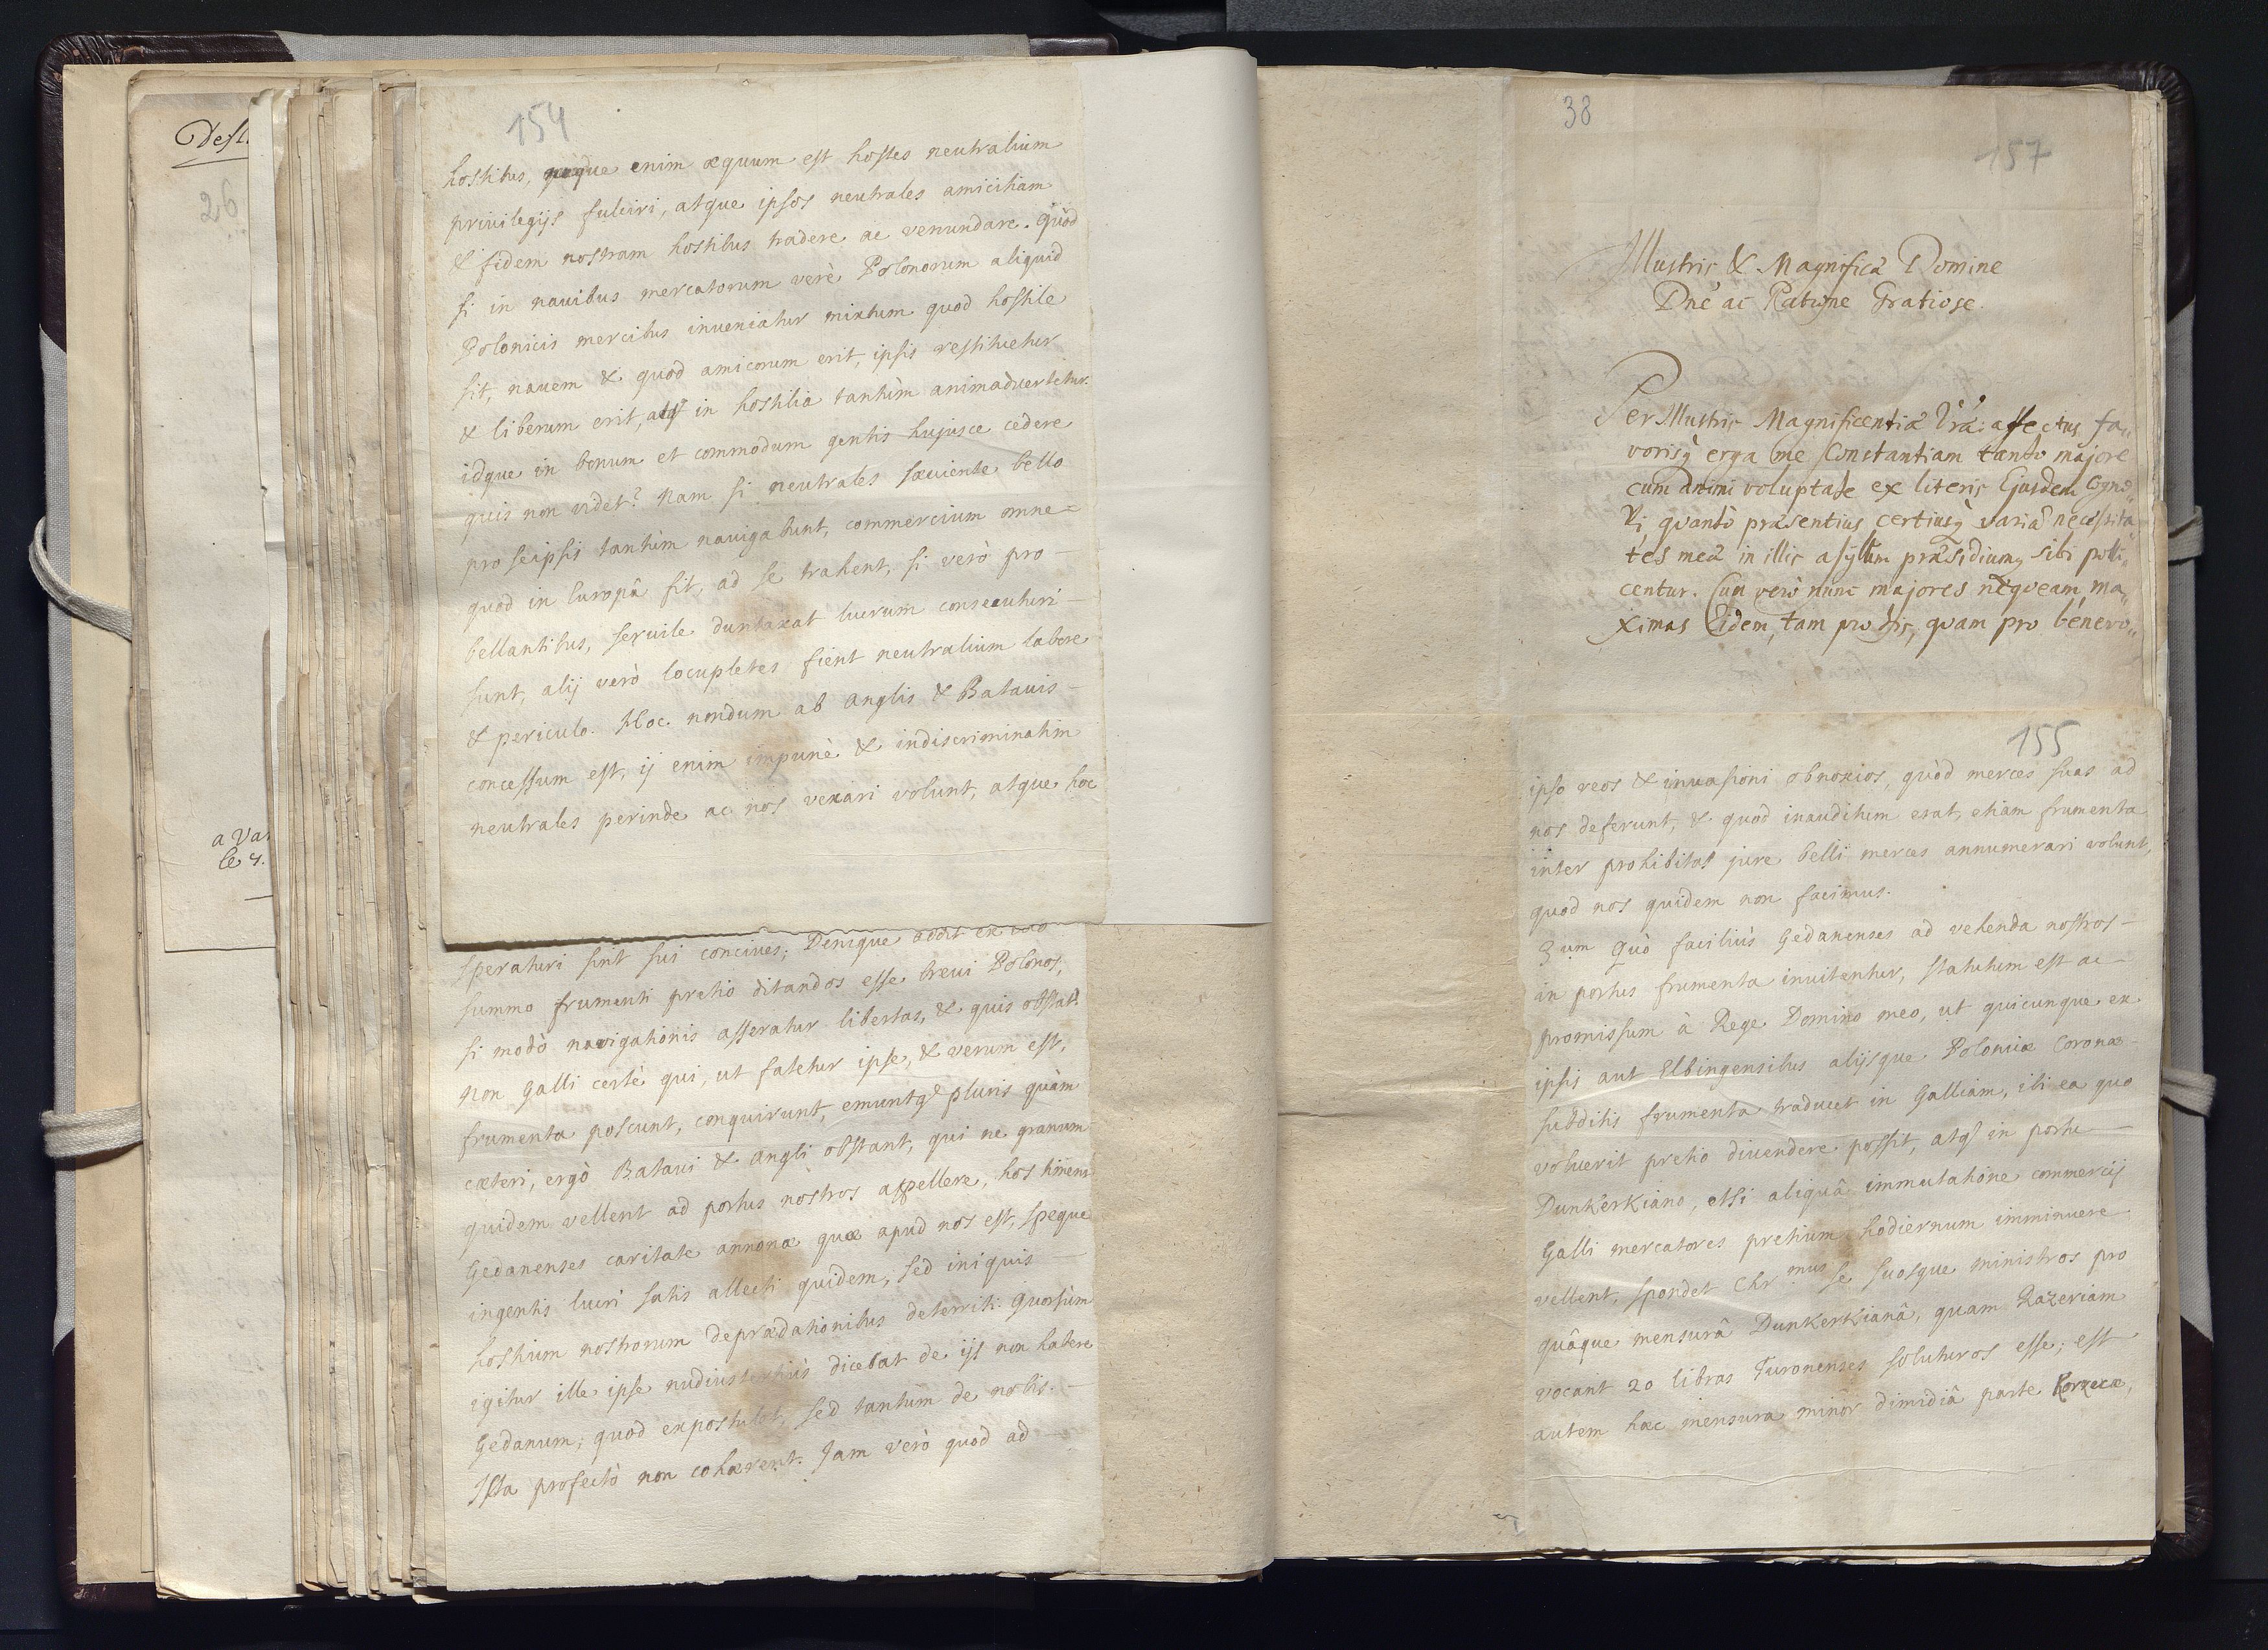 Desl
26
a Var
le 4.
154
hostibus, neque enim æquum est hostes neutralium
priuilegijs fulciri, atque ipsos neutrales amicitiam
& fidem nostram hostibus tradere ac venundare. Quòd
si in nauibus mercatorum verè Polonorum aliquid
Polonicis mercibus inueniatur mixtum quod hostile
sit, nauem & quod amicorum erit, ipsis restituetur
& liberum erit, atq in hostilia tantùm animaduertetur.
idque in bonum et commodum gentis hujusce cedere
quis non videt? Nam si neutrales sæuiente bello
pro seipsis tantùm nauigabunt, commercium omne
quod in Europâ fit, ad se trahent, si verò pro
bellantibus, seruile duntaxat lucrum consecuturi
sunt, alij verò locupletes fient neutralium labore
& periculo. Hoc nondum ab Anglis & Batauis
concessum est, ij enim impunè & indiscriminatim
neutrales perinde ac nos vexari volunt, atque hoc
speraturi sint sui conciues; Denique addit ex
summo frumenti pretio ditandos esse breui Polonos,
si modò navigationis asseratur libertas, & quis obstat?
Non Galli certè qui, ut fatetur ipse, & verum est,
frumenta poscunt, conquirunt, emuntq pluris quàm
cæteri, ergò Bataui & Angli obstant, qui ne granum
quidem vellent ad portus nostros appellere, hos timent
Gedanenses caritate annonæ quæ apud nos est, speque
ingentis lucri satis allecti quidem, sed iniquis
hostium nostrorum deprædationibus deterriti. Quorsùm
igitur ille ipse nudiustertiùs dicebat de ijs non habere
Gedanum, quod expostulet, sed tantùm de nobis.
Ista profectò non cohærent. Jam verò quod ad
38
157
Illustris & Magnifice Domine
Dne ac Patrone Gratiose.
Per Illustris Magnificentiæ Vræ affectus, fa„
vorisq erga me Constantiam tanto majore
cum animi voluptate ex literis Ejusdem Cogno„
vi quantò præsentius certiusq variæ necessita„
tes meæ in illis asylum præsidiumq sibi polli„
centur. Cum verò nunc majores neqveam, ma„
ximas Eidem, tam pro his, quam pro benevo„
155
ipso reos & inuasioni obnoxios, quòd merces suas ad
nos deferunt, & quod inauditum erat, etiam frumenta
inter prohibitas jure belli merces annumerari volunt,
quod nos quidem non facimus.
Quò faciliùs Gedanenses ad vehenda nostros
in portus frumenta inuitentur, statutum est ac
promissum à Rege Domino meo, ut quicunque ex
ipsis aut Elbingensibus alijsque Poloniæ Coronæ
subditis frumenta traducet in Galliam, ibi ea quo
voluerit pretio diuendere possit, atq in portu
Dunkerkiano, etsi aliquâ immutatione commercij
Galli mercatores pretium hodiernum imminuere
vellent, spondet Chr mus se suosque ministros pro
quâque mensurâ Dunkerkianâ, quam Razeriam
vocant 20 libras Turonenses soluturos esse; est
autem hæc mensura minor dimidiâ parte Korzecæ,